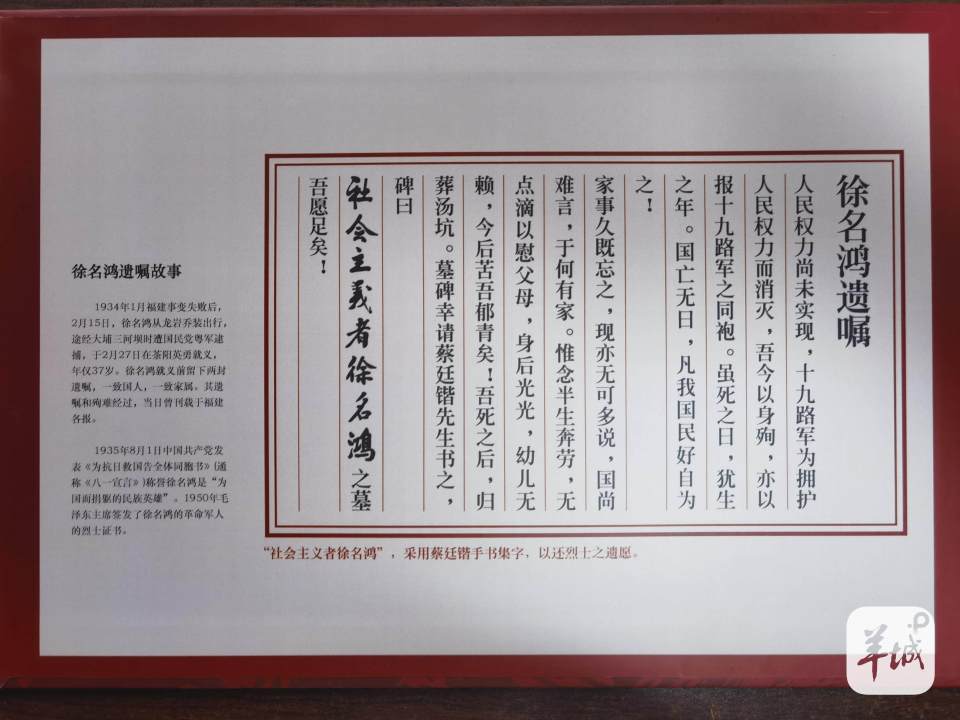 徐名鸿遗嘱
人民权力尚未实现，十九路军为拥护
人民权力而消灭，吾今以身殉，亦以
报十九路军之同袍。虽死之日，犹生
之年。国亡无日，凡我国民好自为
之！
家事久既忘之，现亦无可多说，国尚
难言，于何有家。惟念半生奔劳，无
点滴以慰父母，身后光光，幼儿无
赖，今后苦吾郁青矣！吾死之后，归
葬汤坑。墓碑幸请蔡廷锴先生书之，
碑曰
社会主义者徐名鸿之墓
吾愿足矣！
徐名鸿遗嘱故事
1934年1月福建事变失败后，
2月15日，徐名鸿从龙岩乔装出行，
途经大埔三河坝时遭国民党粤军逮
捕，于2月27日在茶阳英勇就义，
年仅37岁。徐名鸿就义前留下两封
遗嘱，一致国人，一致家属。其遗
嘱和殉难经过，当日曾刊载于福建
各报。
1935年8月1日中国共产党发
表《为抗日救国告全体同胞书》(通
称《八一宣言》)称誉徐名鸿是“为
国而捐躯的民族英雄”。1950年毛
泽东主席签发了徐名鸿的革命军人
的烈士证书。
“社会主义者徐名鸿”，采用蔡廷锴手书集字，以还烈士之遗愿。
羊城
P